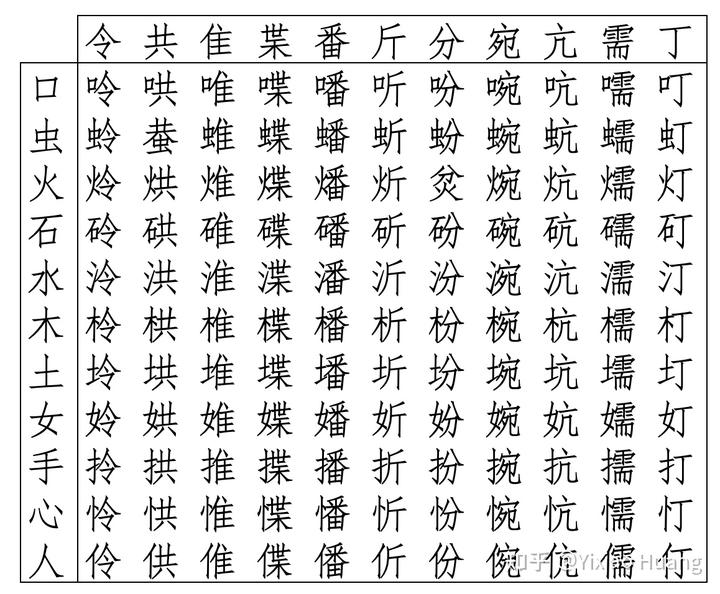 令 共 隹 枼 番 斤 分 宛 亢 需 丁
口 呤 哄 唯 喋 噃 听 吩 啘 吭 嚅 叮
虫 蛉 蛬 蜼 蝶 蟠 蚚 蚡 蜿 蚢 蠕 虰
火 炩 烘 焳 煠 燔 炘 炃 焥 炕 燸 灯
石 砱 硔 碓 碟 磻 斫 砏 碗 砊 礝 矴
水 泠 洪 淮 渫 潘 沂 汾 涴 沆 濡 汀
木 柃 栱 椎 楪 橎 析 枌 椀 杭 檽 朾
土 坽 垬 堆 堞 墦 圻 坋 埦 坑 壖 圢
女 姈 娂 婎 媟 嬏 妡 妢 婉 妔 嬬 奵
手 拎 拱 推 揲 播 折 扮 捥 抗 擩 打
心 怜 恾 惟 惵 憣 忻 忿 惋 忼 懦 忊
人 伶 供 倠 偞 僠 伒 份 倇 伉 儒 仃
知乎 @Yixiao Huang